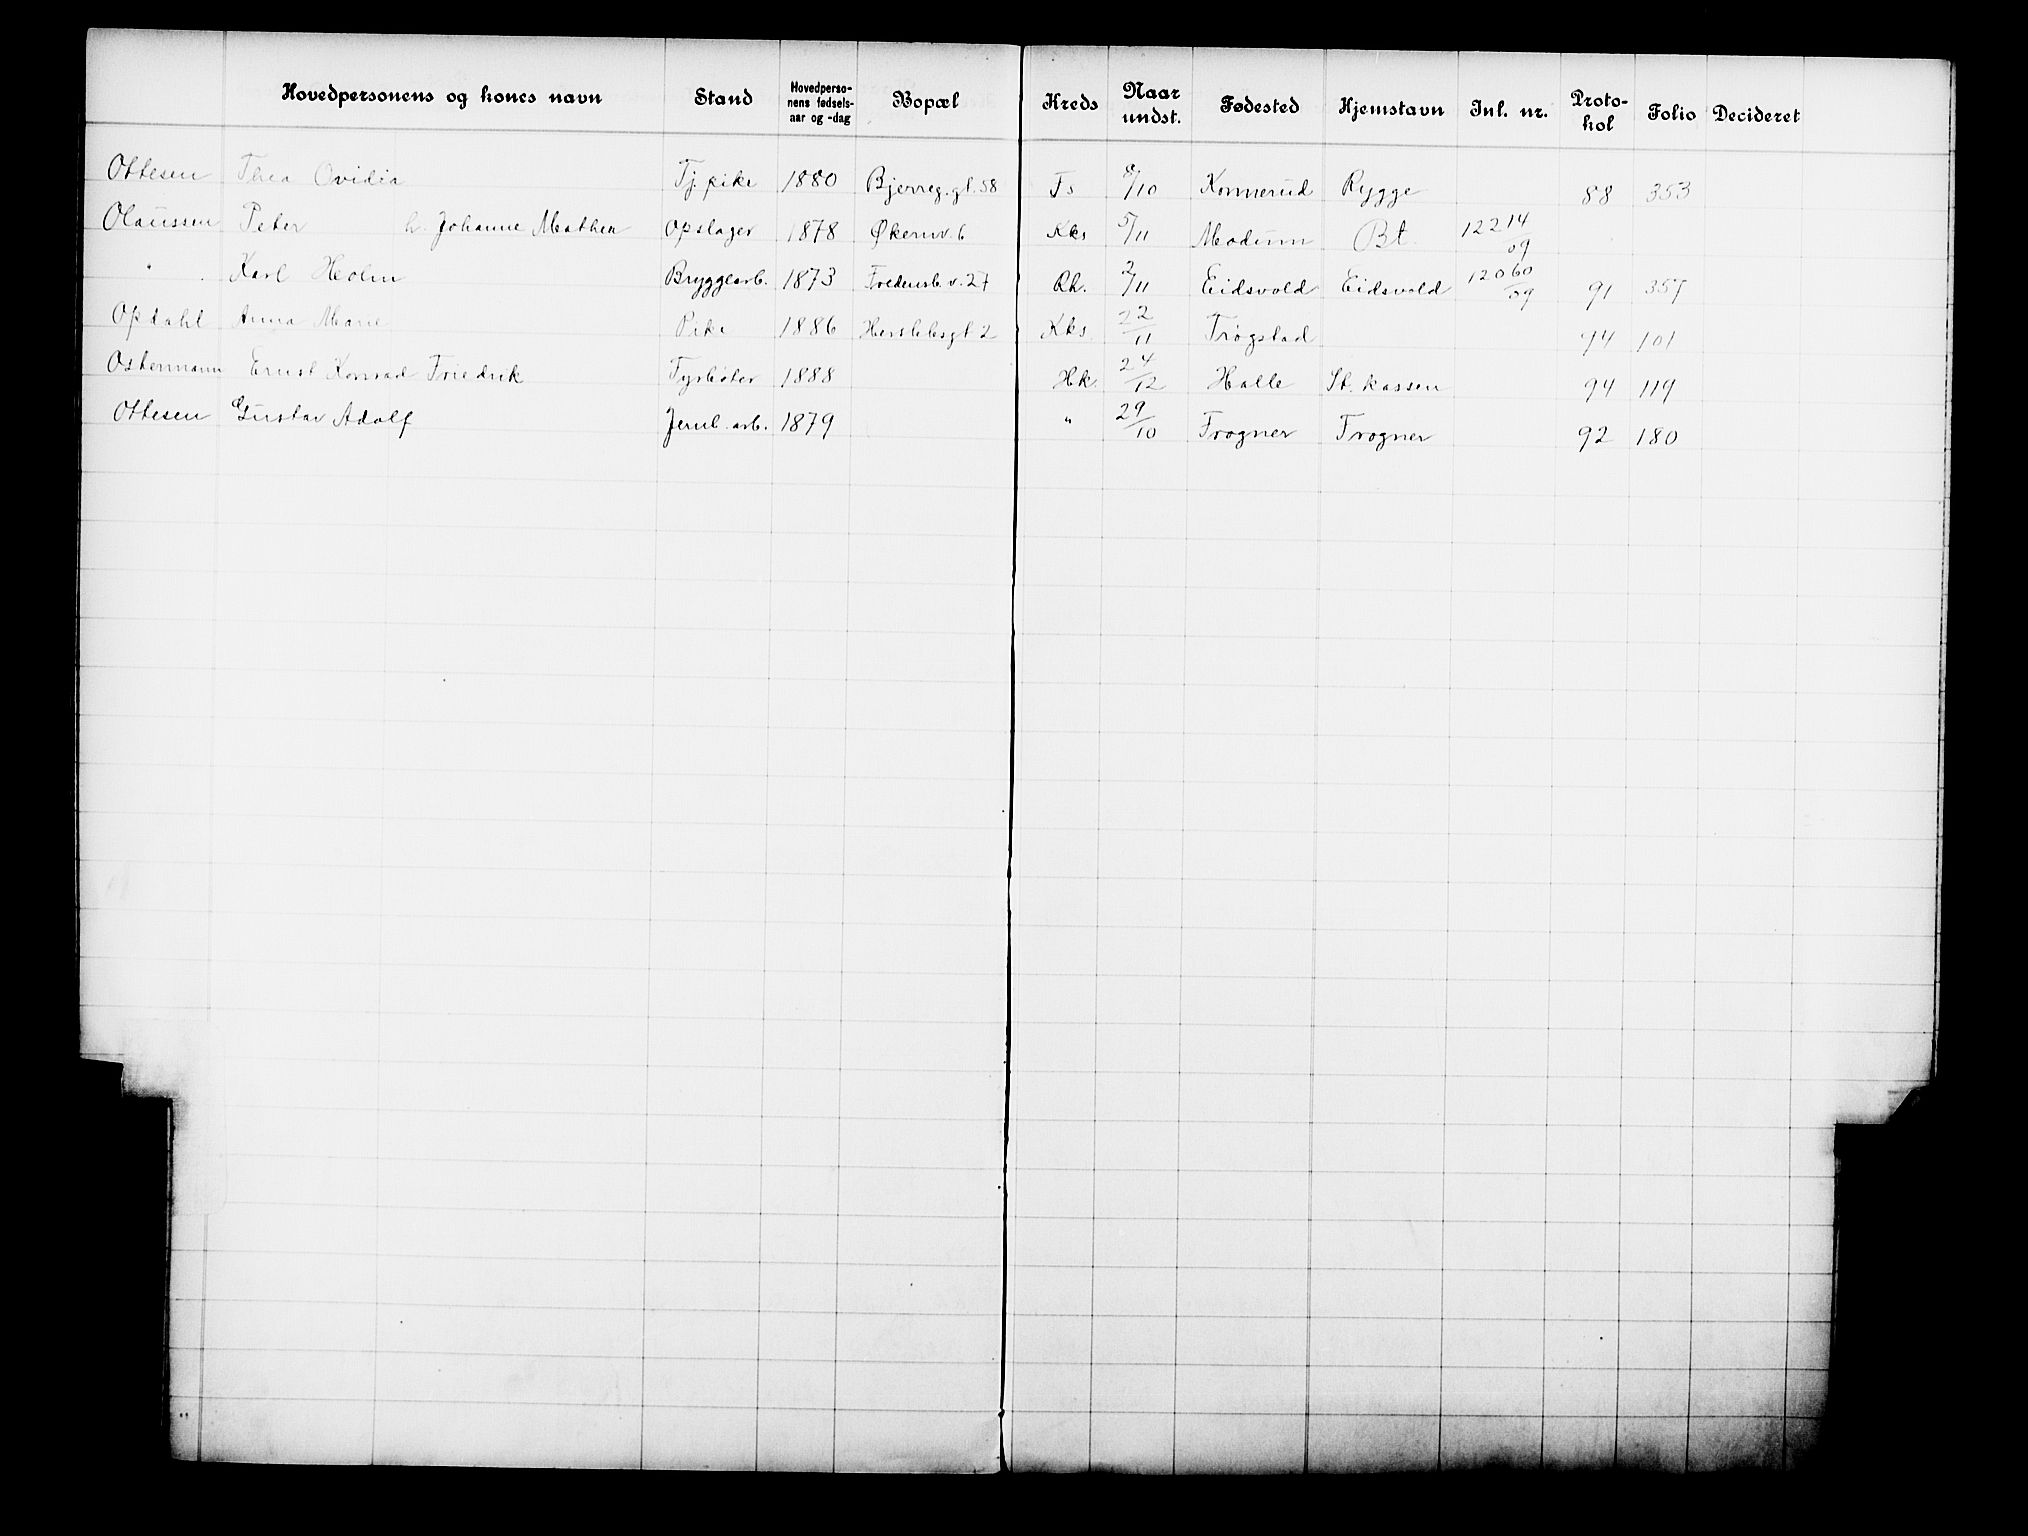 Hovedpersonens og kones navn Stand Hovedperso-nens fødsels-aar og -dag Bopæl Kreds Naar undst. Fødested Hjemstavn Int. nr. Proto-kol Folio Decideret
Ottesen Thea Ovidia Tj. pike 1880 Bjerreg. gt. 58 Ts 8/10 Konnerud Rygge 88 353
Olaussen Peter h. Johanne Mathea Opslager 1878 Økernv. 6 Kks 5/11 Modum Bt. 12214/09
" Karl Holm Bryggearb. 1873 Fredensb. v. 27 Rh. 2/11 Eidsvold Eidsvold 12060/09 91 357
Opdahl Anna Marie Pike 1886 Herslebsgt 2 Kks. 22/11 Trøgstad 94 101
Ostermann Ernst Konrad Friedrik Fyrbøter 1888 Hk. 24/12 Halle St. kassen 94 119
Ottesen Gustav Adolf Jernb. arb. 1879 " 29/10 Frogner Frogner 92 180